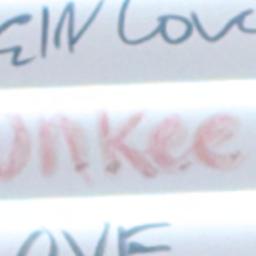 EIN Love
unkee
OVE